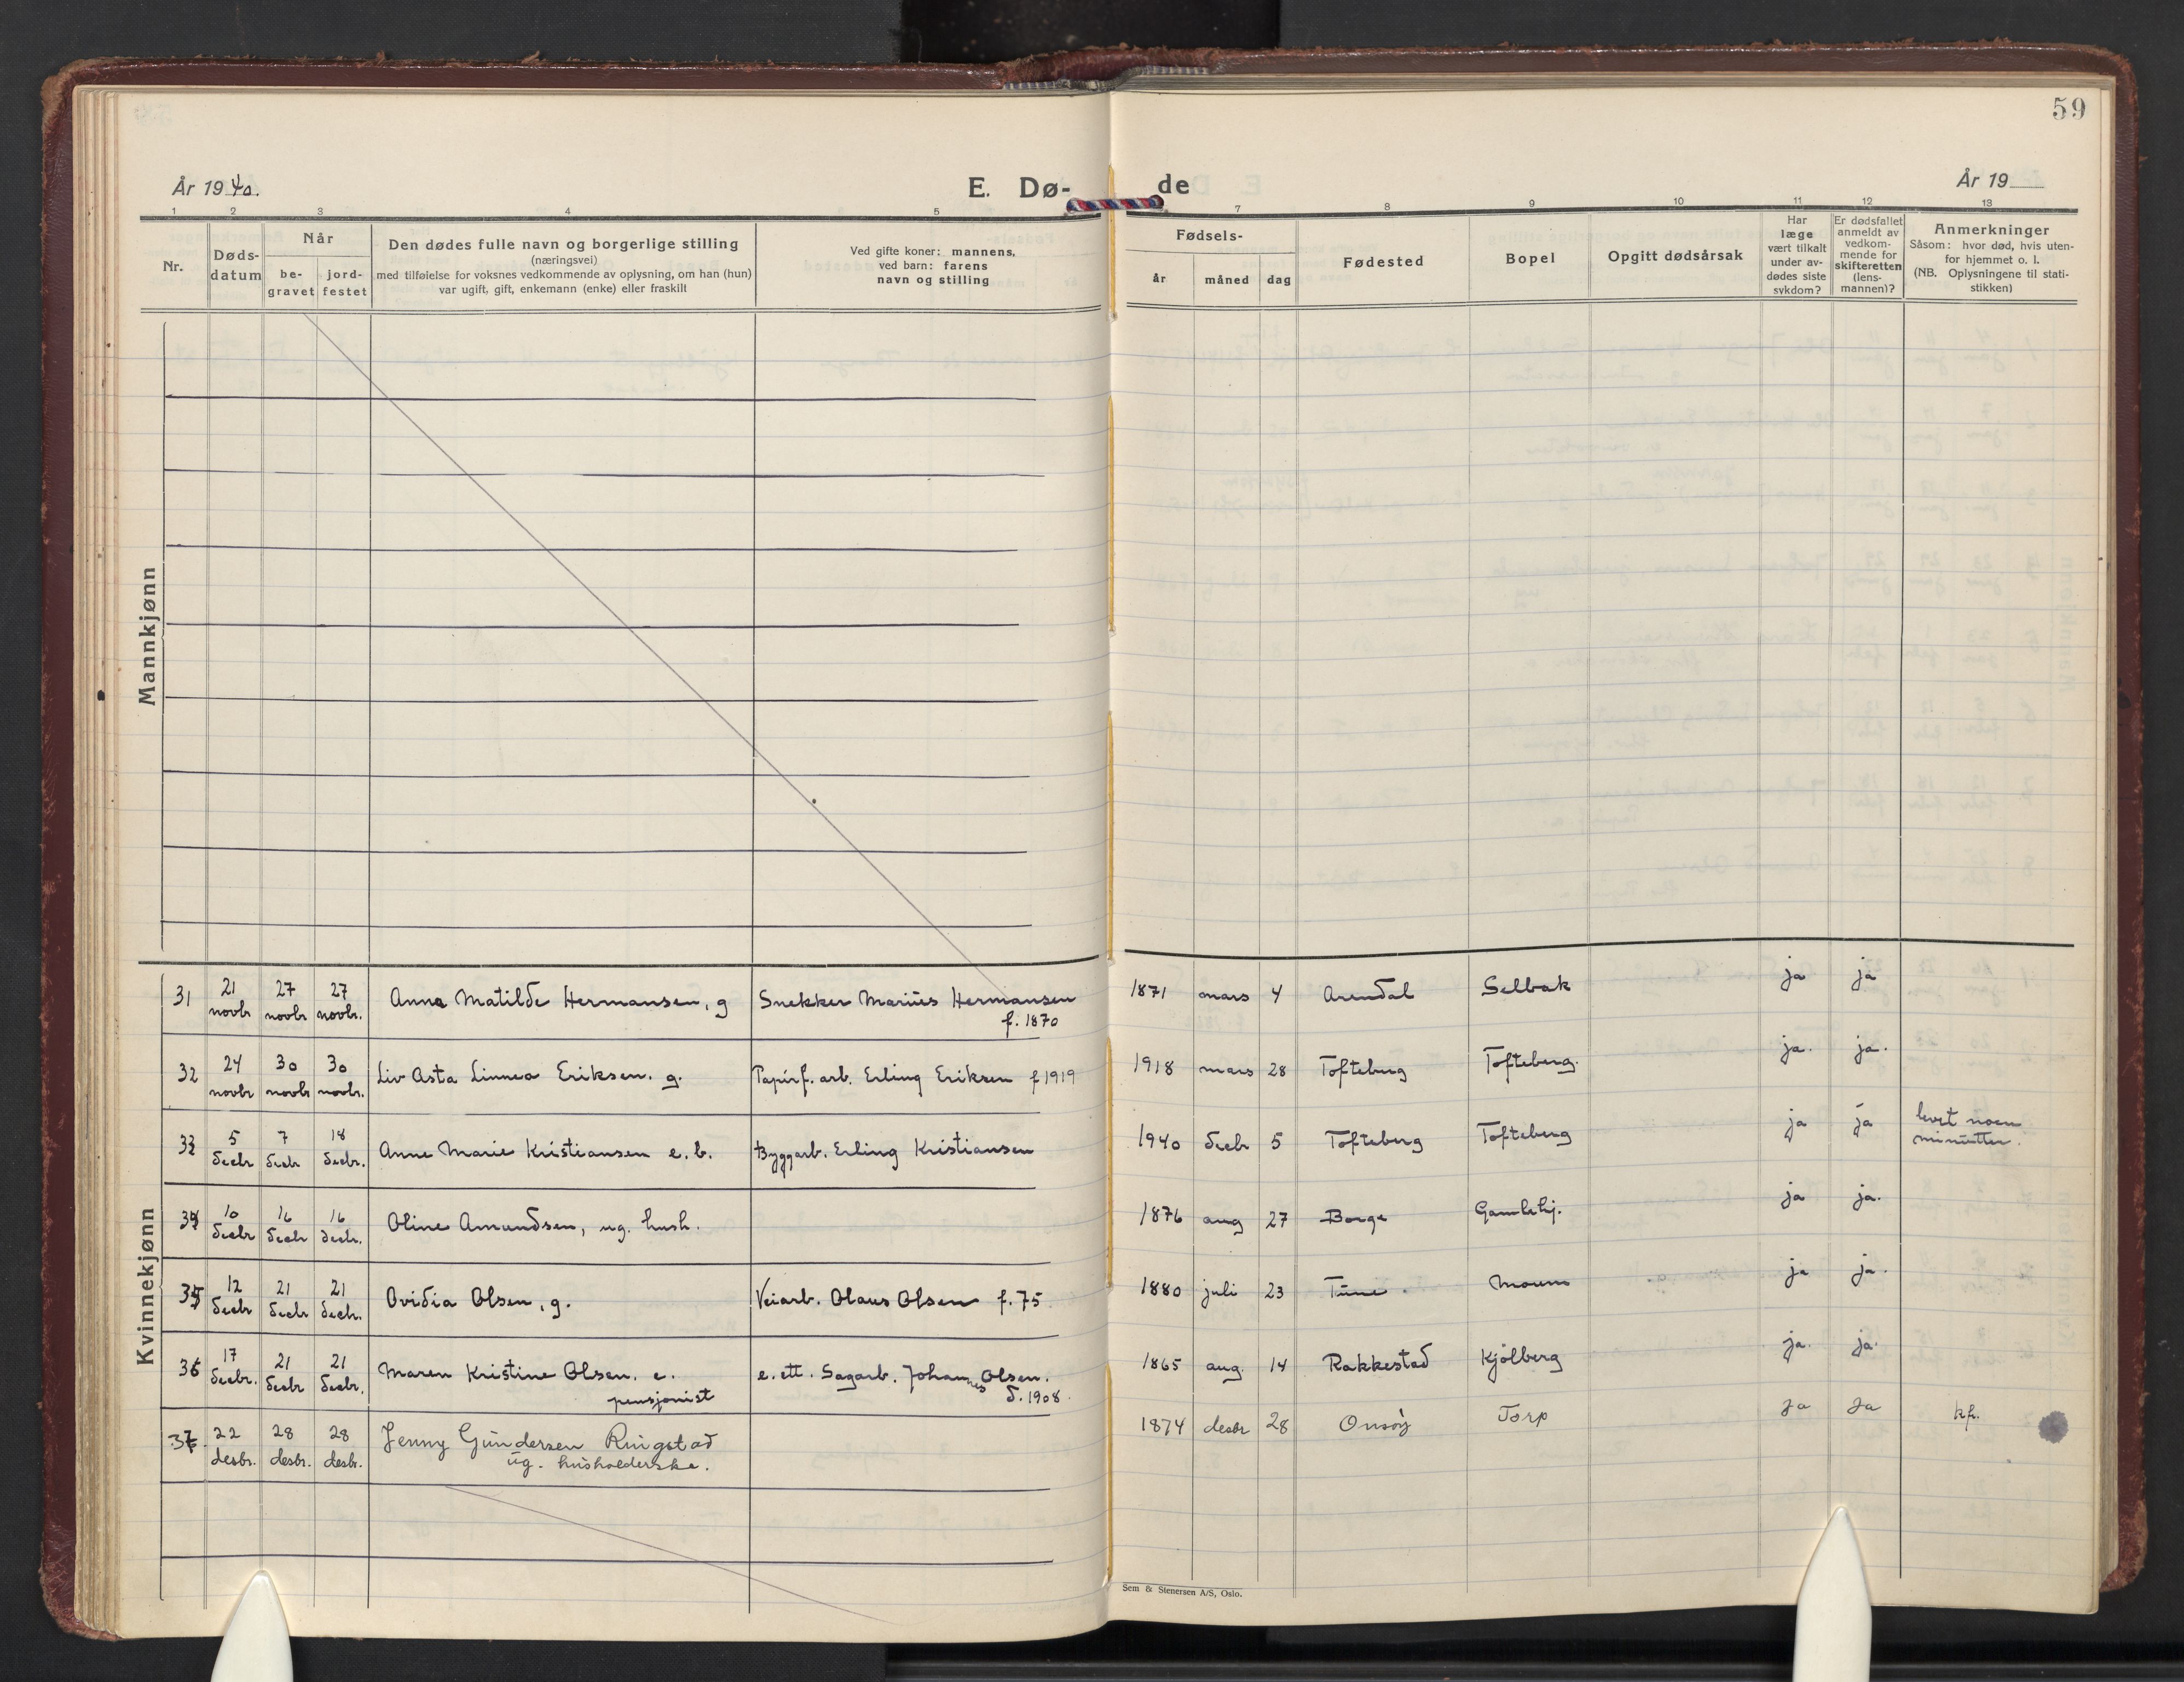 59
År 1940.
E. Dø-
de
År 19
1 2 3 4 5 7 8 9 10 11 12 13
Nr.
Døds-
datum
Når
be-
gravet
jord-
festet
Den dødes fulle navn og borgerlige stilling
(næringsvei)
med tilføielse for voksnes vedkommende av oplysning, om han (hun)
var ugift, gift, enkemann (enke) eller fraskilt
Ved gifte koner: mannens,
ved barn: farens
navn og stilling
Fødsels-
år måned dag
Fødested
Bopel
Opgitt dødsårsak
Har
læge
vært tilkalt
under av-
dødes siste
sykdom?
Er dødsfallet
anmeldt av
vedkom-
mende for
skifteretten
(lens-
mannen)?
Anmerkninger
Såsom: hvor død, hvis uten-
for hjemmet o. l.
(NB. Oplysningene til stati-
stikken)
Mannkjønn
Kvinnekjønn
31 21 novbr 27 novbr 27 novbr. Anna Matilde Hermansen, g Snekker Marius Hermansen 1871 mars 4 Arendal Selbak ja ja
f. 1870
32 24 novbr 30 novbr 30 novbr. Liv Asta Linnea Eriksen. g. Papirf. arb. Erling Eriksen f 1919 1918 mars 28 Tofteberg Tofteberg. ja. ja.
33 5 decbr 7 decbr 18 decbr. Anne Marie Kristiansen e. b. Byggarb. Erling Kristiansen 1940 decbr 5 Tofteberg Tofteberg ja ja levet noen
minutter.
34 10 decbr 16 decbr 16 decbr. Oline Amundsen, ug. hush. 1876 aug 27 Borge Gamlebj. ja ja.
35 12 decbr 21 decbr 21 decbr. Ovidia Olsen, g. Veiarb. Olaus Olsen f. 75 1880 juli 23 Tune. Moum ja ja.
36 17 decbr. 21 decbr 21 decbr. Maren Kristine Olsen. e. e. ett. Sagarb. Johannes Olsen. 1865 aug. 14 Rakkestad Kjølberg ja. ja.
pensjonist d. 1908.
37. 22 desbr. 28 desbr. 28 desbr. Jenny Gundersen Ringstad 1874 desbr 28 Onsøy Torp Ja Ja
ug. husholderske.
Sem & Stenersen A/S, Oslo.